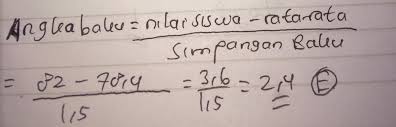 Angka baku = nilai siswa - rata rata
Simpangan Baku
= 82 - 78,4 = 3,6 = 2,4 (E)
1,5 1,5